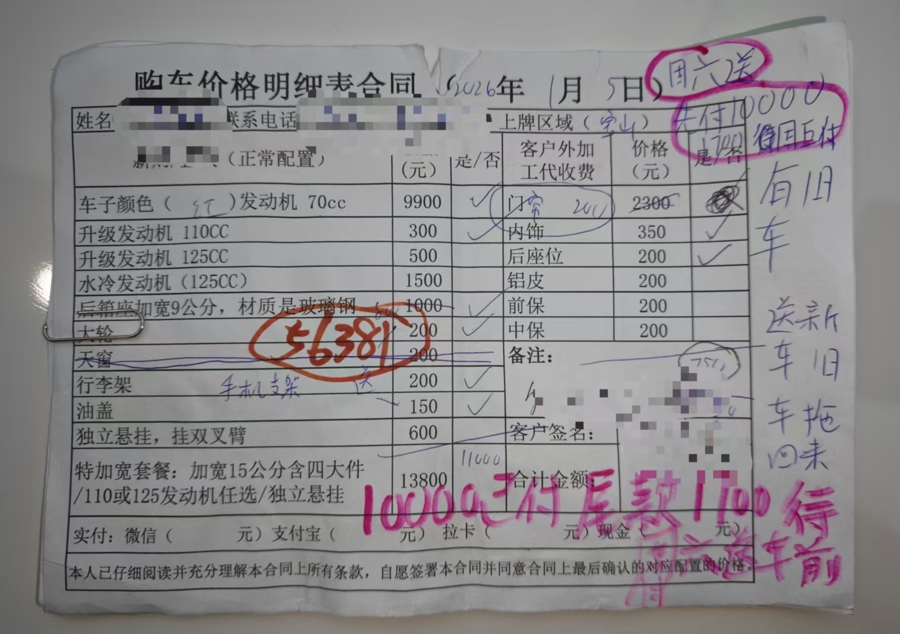 购车价格明细表合同（2026年1月5日）
周六送
姓名 联系电话 上牌区域（宝山）
已付10000
（正常配置） （元） 是/否 客户外加工代收费 价格（元） 是/否
车子颜色（红）发动机 70cc 9900 ✓ 门帘 2300
有旧
升级发动机 110CC 300 ✓ 内饰 350 ✓
车
升级发动机 125CC 500 后座位 200 ✓
水冷发动机（125CC） 1500 铝皮 200
后箱座加宽9公分，材质是玻璃钢 1000 ✓ 前保 200
大轮 200 ✓ 中保 200
56381
送新
天窗 200 备注：
车旧
行李架 手机支架 送 200 ✓
油盖 150 ✓
车拖
独立悬挂，挂双叉臂 600 客户签名：
回来
特加宽套餐：加宽15公分含四大件 13800 11000 合计金额：
/110或125发动机任选/独立悬挂
10000已付尾款1700待
实付：微信（ 元）支付宝（ 元）拉卡（ 元）现金（ 元）
周六送车前
本人已仔细阅读并充分理解本合同上所有条款，自愿签署本合同并同意合同上最后确认的对应配置的价格。